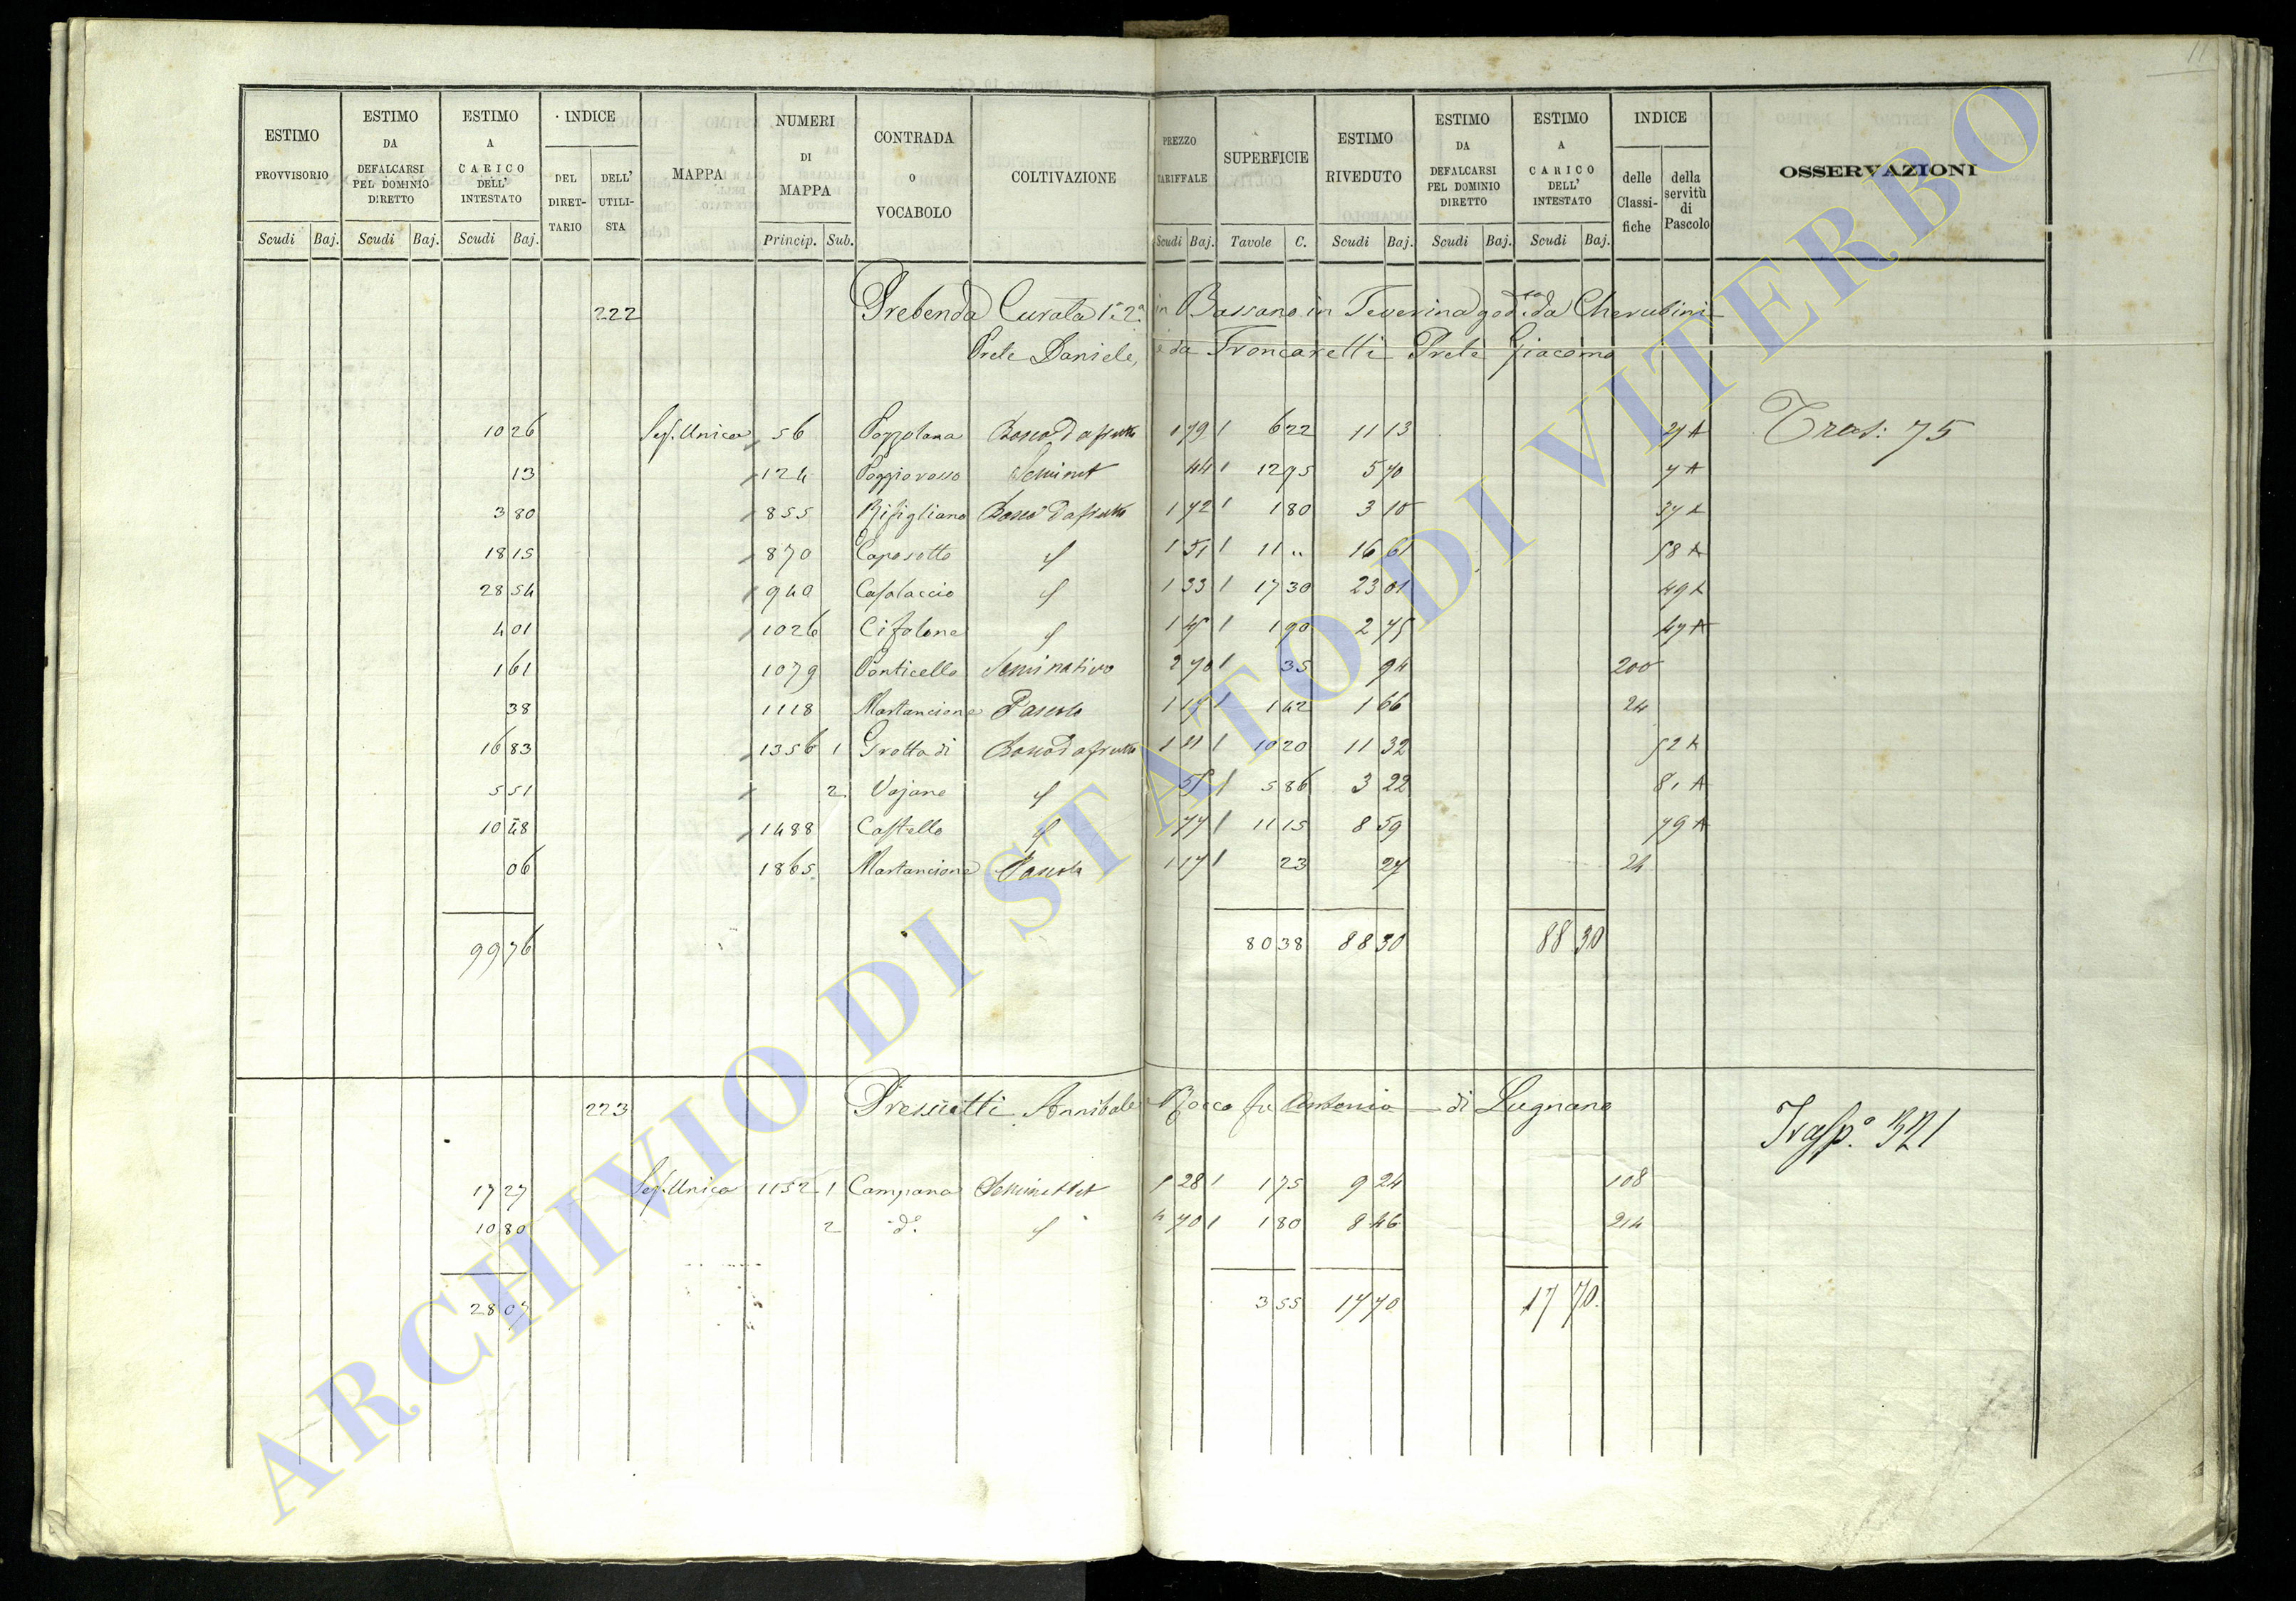 11
ESTIMO PROVVISORIO | ESTIMO DA DEFALCARSI PEL DOMINIO DIRETTO | ESTIMO A CARICO DELL' INTESTATO | INDICE | MAPPA | NUMERI DI MAPPA | CONTRADA O VOCABOLO | COLTIVAZIONE | PREZZO TARIFFALE | SUPERFICIE | ESTIMO RIVEDUTO | ESTIMO DA DEFALCARSI PEL DOMINIO DIRETTO | ESTIMO A CARICO DELL' INTESTATO | INDICE | OSSERVAZIONI
DEL DIRETTARIO | DELL' UTILISTA | delle Classifiche | della servitù di Pascolo
Scudi Baj. | Scudi Baj. | Scudi Baj. | Princip. Sub. | Scudi Baj. | Tavole C. | Scudi Baj. | Scudi Baj. | Scudi Baj.
222 Prebenda Curata 1ª 2ª in Bassano in Teverina god.ta da Cherubini
Prete Daniele, e da Froncarelli Prete Giacomo
10 26 Sez. Unica 56 Pozzolana 1 79 6 22 11 13 27 A Tras: 75
13 124 Poggiorosso Seminat 44 12 95 5 70 7 A
3 80 855 Rifigliano 1 72 1 80 3 10 37 A
18 15 870 Caposotto 1 51 11 „ 16 61 58 A
28 54 940 Casalaccio 1 33 17 30 23 01 49 A
4 01 1026 Cifolone 1 45 1 90 2 75 47 A
1 61 1079 Ponticello Seminativo 2 70 35 94 200
38 1118 Martancione Pascolo 1 17 1 42 1 66 24
16 83 1356 1 Grotta di 1 11 10 20 11 32 52 A
5 51 2 Vajano 55 5 86 3 22 81 A
10 48 1488 Castello 77 11 15 8 59 79 A
06 1865 Martancione Pascolo 1 17 23 27 24
99 76 80 38 88 30 88 30
223 Presciutti Annibale Rocco fu Antonio — di Lugnano
Trasp.º 321
17 27 Sez. Unica 1152 1 Campana 1 75 9 24 108
10 80 2 d.º 4 70 1 80 8 46 214
28 07 3 55 17 70 17 70
ARCHIVIO DI STATO DI VITERBO